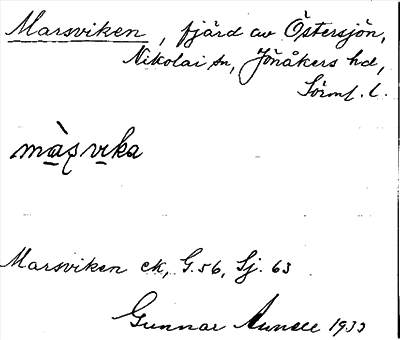 Marsviken, fjärd av Östersjön,
Nikolai sn, Jönåkers hd,
Sörml. l.
màʂvika
Marsviken ek, G.56, Sj. 63
Gunnar 1933